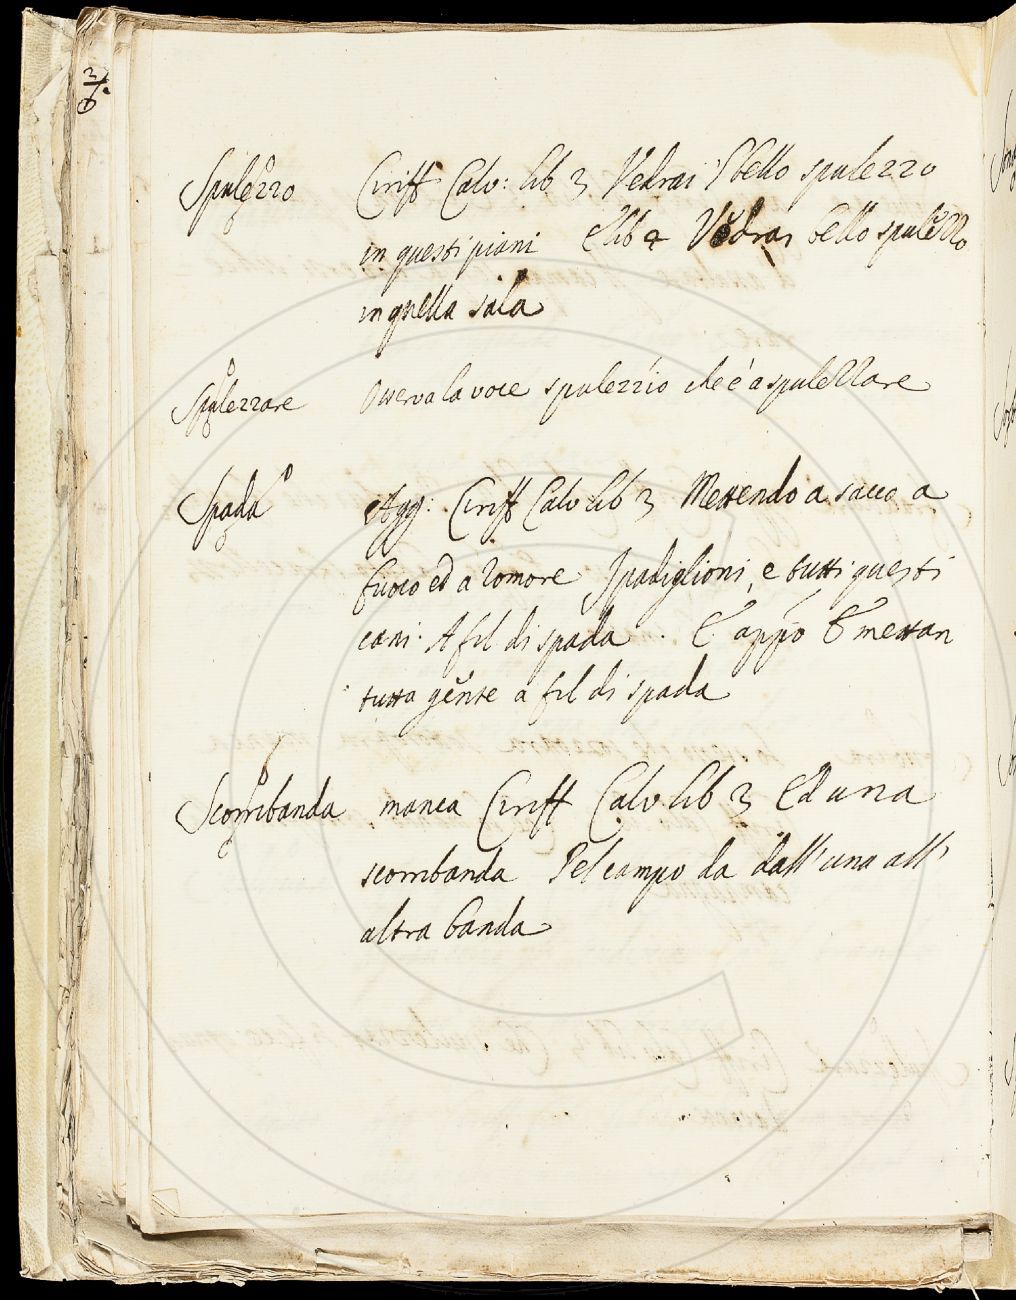 Spulezzo Ciriff Calv: lib 3 Vedrai 'l bello spulezzo
in questi piani E lib 4 Vedrai bello spulezzo
in quella sala
Spulezzare Osserva la voce spulezzio che è a spulezzare
Spada Agg: Ciriff Calv lib 3 Mettendo a sacco a
fuoco ed a romore I padiglioni, e tutti questi
cani. A fil di spada. E appo E mettan
tutta gente a fil di spada
Scombanda manca Ciriff Calv lib 3 Ed una
scombanda Pel campo da dall' una all'
altra banda